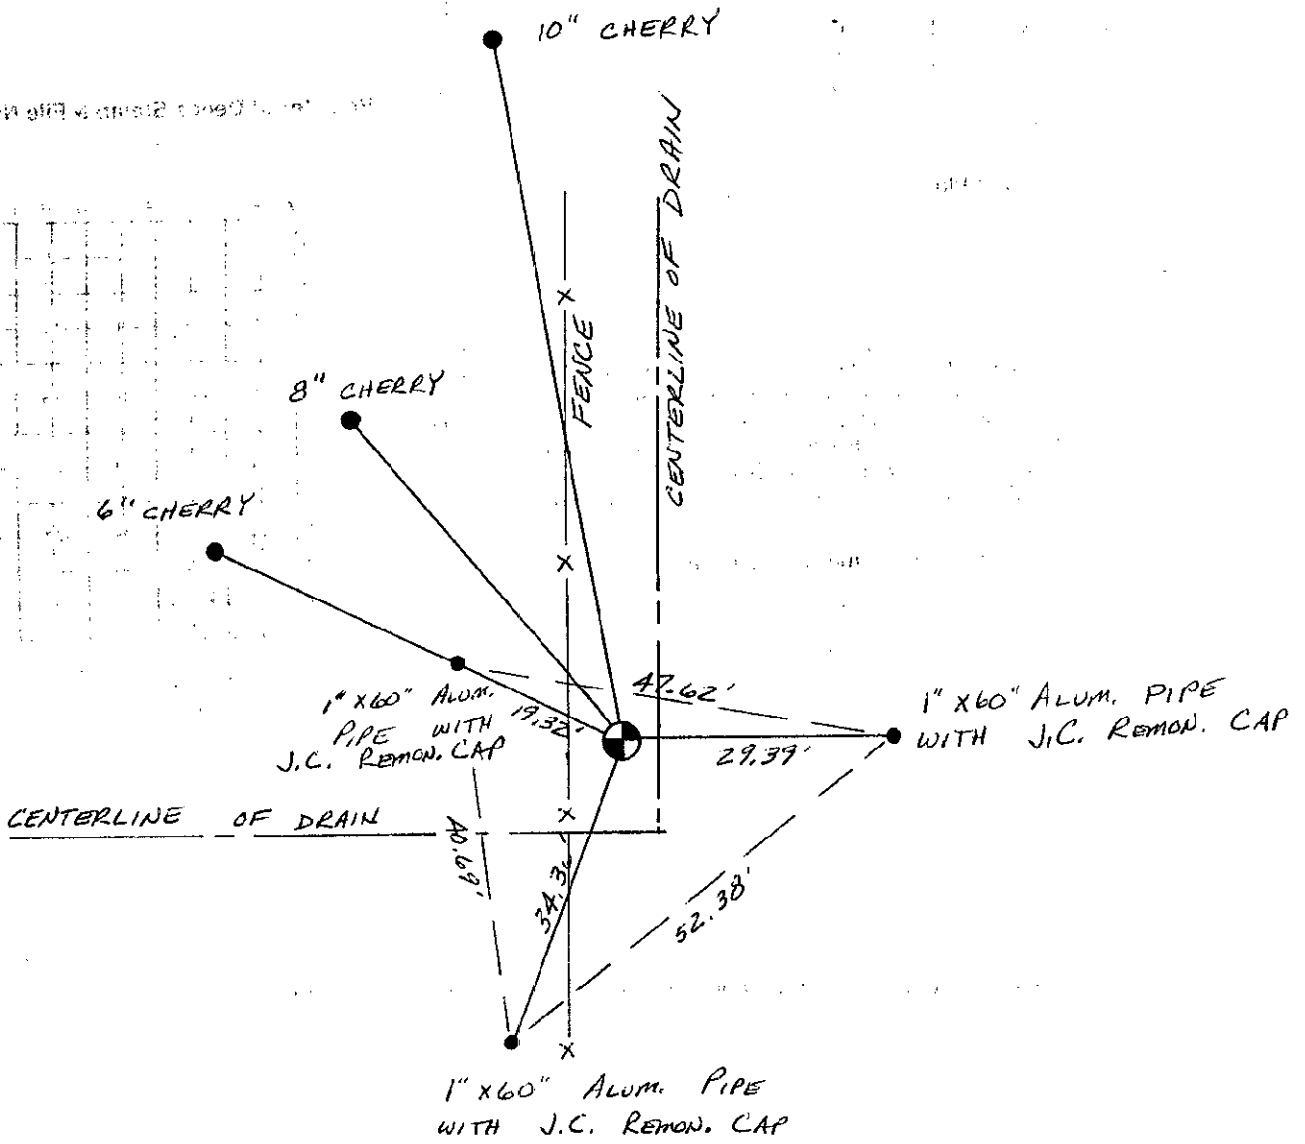 10" CHERRY
CENTERLINE OF DRAIN
FENCE
8" CHERRY
6" CHERRY
47.62'
1" X60" ALUM.
PIPE WITH
J.C. REMON. CAP
19.32'
1" X60" ALUM. PIPE
WITH J.C. REMON. CAP
29.39'
CENTERLINE OF DRAIN
40.69'
34.36'
52.38'
1" X60" ALUM. PIPE
WITH J.C. REMON. CAP